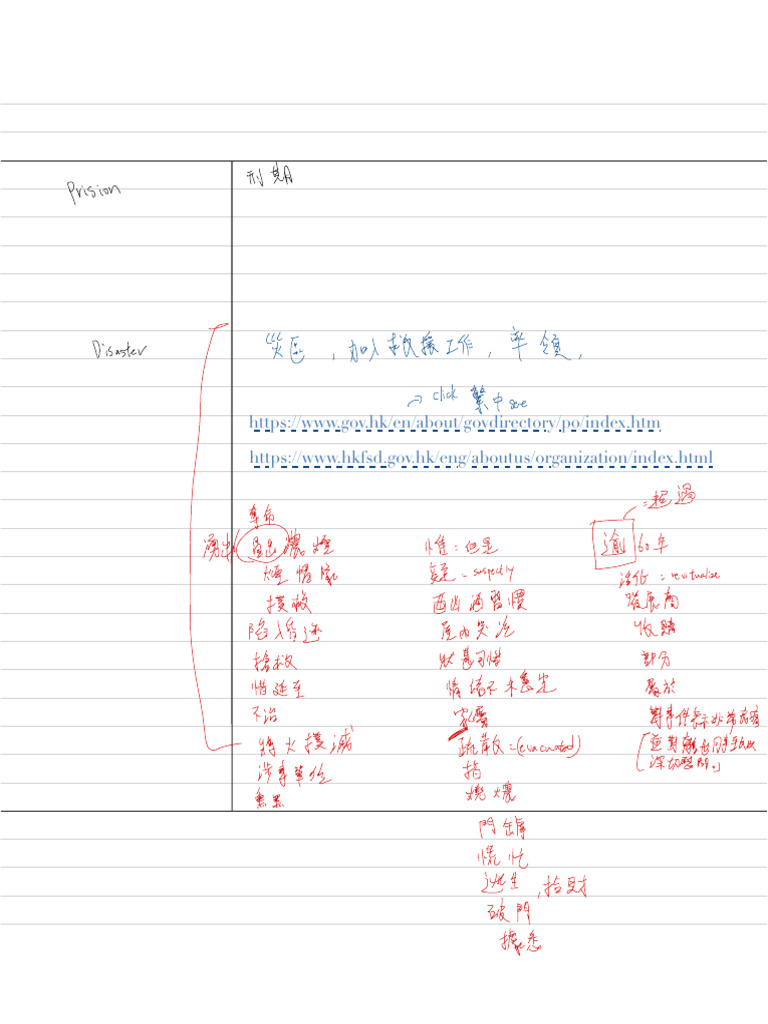 Prision
刑期
Disaster
災區，加入救援工作，率領，
→ click 繁中 see
https://www.gov.hk/en/about/govdirectory/po/index.htm
https://www.hkfsd.gov.hk/eng/aboutus/organization/index.html
奪命
湧出 冒出濃煙
撲救
陷入昏迷
搶救
惜延至
不治
將火撲滅
涉事單位
惟：但是
疑 = suspectly
屋內
情緒不 穩定
家屬
疏散 = (evacuated)
指
燒燬
門鎖
慌忙
逃生，拾財
破門
據悉
= 超過
逾 60年
活化 = revitualize
發展商
收購
部分
屬於
深切慰問。」